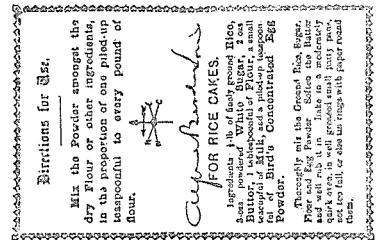 Directions for Use.
Mix the Powder amongst the
dry Flour or other ingredients,
in the proportion of one piled-up
teaspoonful to every pound of
flour.
Alfred Bird & Sons
FOR RICE CAKES.
Ingredients: ¼-lb of finely ground Rice,
3-ozs. powdered White Sugar, 2 ozs
Butter, 1 tablespoonful of Flour, a small
teacupful of Milk, and a piled-up teaspoon-
ful of Bird's Concentrated Egg
Powder.
Thoroughly mix the Ground Rice, Sugar,
Flour and Egg Powder Soften the Butter
and well rub it in Bake in a moderately
quick oven, in well greased small patty pans,
not too full, or else tin rings with paper round
them.